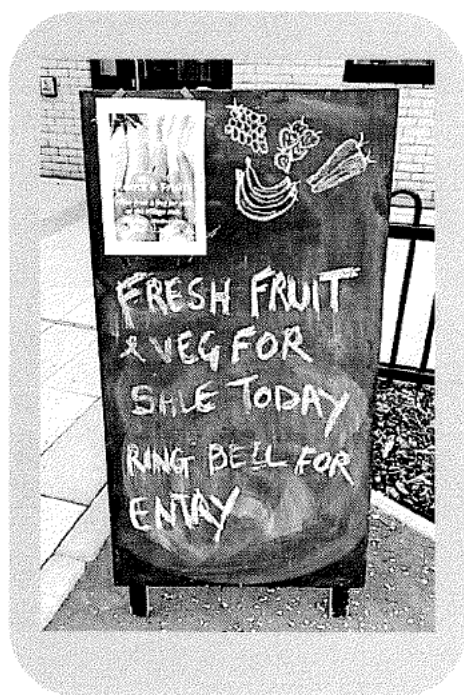 FRESH FRUIT
& VEG FOR
SALE TODAY
RING BELL FOR
ENTRY